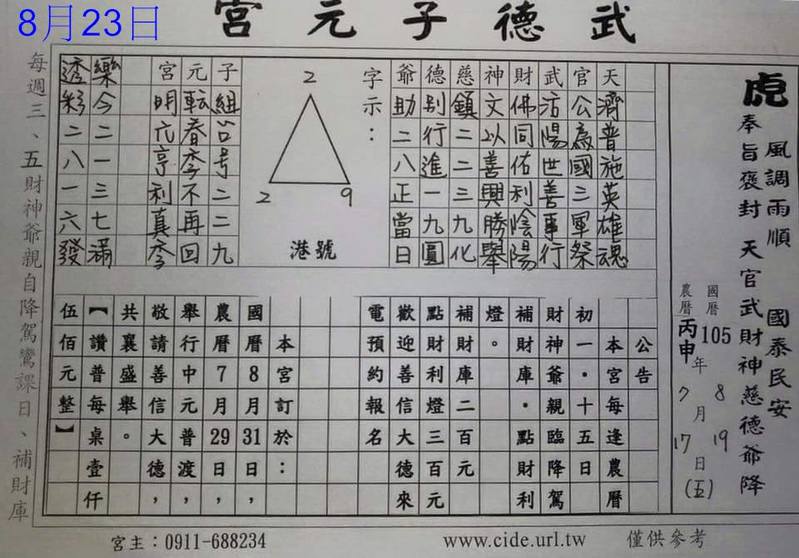 8月23日
武德子元宮
虎
風調雨順 國泰民安
奉旨褒封 天官武財神慈德爺降
國曆 105年8月19日(五)
農曆 丙申 7 17
天濟普施英雄魂
官公為國三軍祭
武活陽世善事行
財佛同佑利陰陽
神文以善興勝舉
慈鎮二二三九化
德別行進一九圓
爺助二八正當日
字示：
2
2 9
港號
子組合号二二九
元転春季不再回
宮明亨利真
樂今二一三七滿
透彩二八一六發
公告
本宮每逢農曆
初一．十五日
財神爺親臨降駕
補財庫．點財利
燈。
補財庫二百元
點財利燈三百元
歡迎善信大德來
電預約報名
本宮訂於：
國曆8月31日，
農曆7月29日，
舉行中元普渡，
敬請善信大德，
共襄盛舉。
【讚普每桌壹仟
伍佰元整】
每週三、五財神爺親自降駕鸞課日、補財庫
宮主：0911-688234
www.cide.url.tw
僅供參考